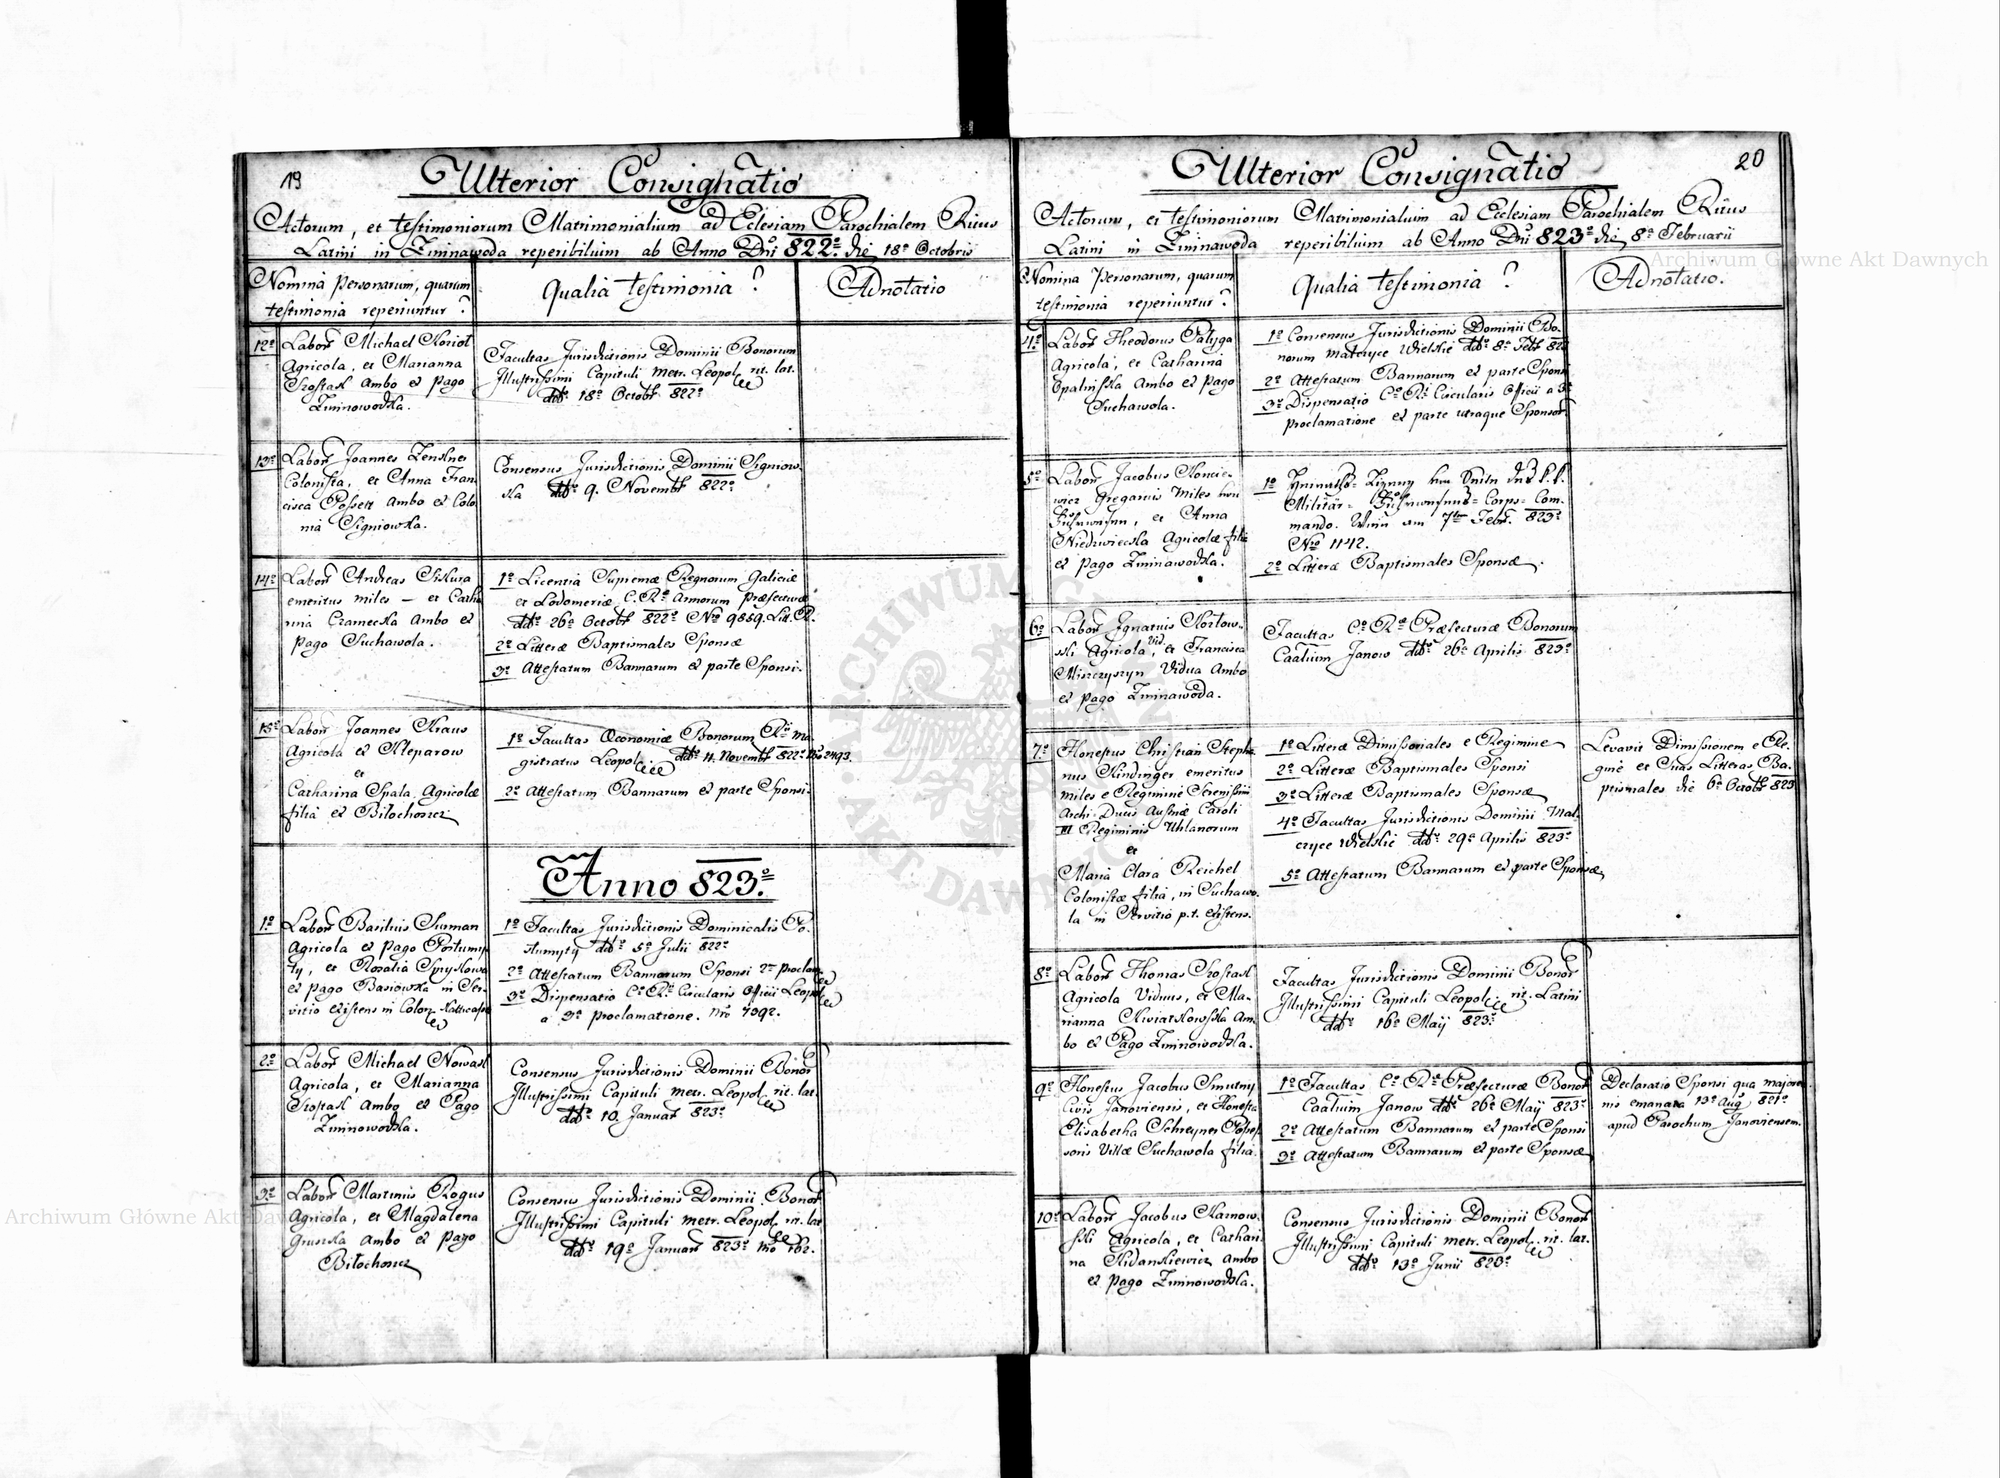 19
Ulterior Consignatio
Actorum, et testimoniorum Matrimonialium ad Eclesiam Parochialem Ritus
Latini in Zimnawoda reperibilium ab Anno Dni 822º die 18ª Octobris
Nomina Personarum, quarum
testimonia reperiuntur?
Qualia testimonia?
Adnotatio
12º
Labor Michael Koriot
Agricola, et Marianna
Szostak Ambo ex Pago
Zimnowodska.
Facultas Jurisdictionis Dominii Bonorum
Illustrissimi Capituli metr. Leopol. rit. lat.
ddº 18ª Octobr 822º
13º
Labor Joannes Zenkner
Colonista, et Anna Fran
cisca Posselt Ambo ex Colo
nia Signiowka.
Consensus Jurisdictionis Dominii Signiow
ka ddº 9. Novembr 822º
14º
Labor Andreas
emeritus miles — et Catha
rina Czarnecka Ambo ex
Pago Suchawola.
1º Licentia Supremæ Regnorum Galiciæ
et Lodomeriæ C. Rª Armorum Præfecturæ
ddº 26ª Octobr 822º Nº 9859. Litt. R.
2º Litteræ Baptismales Sponsæ
3º Attestatum Bannorum ex parte Sponsi.
15º
Labor Joannes Kraus
Agricola ex Kleparow
et
Catharina Spala Agricolæ
filia ex Bilochorcz
1º Facultas Œconomiæ Bonorum Rª ma
gistratus Leopol. ddº 11. Novembr 822º Nro 2493.
2º Attestatum Bannorum ex parte Sponsi.
Anno 823º
1º
Labor Basilius Surman
Agricola ex Pago Portumy
ty, et Rosalia Spryskowa
ex Pago Basiowka in Ser
vitio existens in Colon.
1º Facultas Jurisdictionis Dominicalis Po.
ddº 5ª Julii 822º
2º Attestatum Bannorum Sponsi 2ª Proclam
3º Dispensatio Cº Rª Circularis Officii Leopol
a 3ª Proclamatione. Nro 7392.
2º
Labor Michael Nowak
Agricola, et Marianna
Szostak Ambo ex Pago
Zimnowodska.
Consensus Jurisdictionis Dominii Bonor
Illustrissimi Capituli metr. Leopol. rit. lat.
ddº 10. Januar 823º
3º
Labor Martinus Rogus
Agricola, et Magdalena
Gruszka Ambo ex Pago
Bilochorcz
Consensus Jurisdictionis Dominii Bonor
Illustrissimi Capituli metr. Leopol. rit. lat
ddº 19ª Januar 823º Nro 162.
20
Ulterior Consignatio
Actorum, et testimoniorum Matrimonialium ad Ecclesiam Parochialem Ritus
Latini in Zimnawoda reperibilium ab Anno Dni 823º die 8ª Februarii
Nomina Personarum, quarum
testimonia reperiuntur?
Qualia testimonia?
Adnotatio.
4º
Labor Theodorus Palyga
Agricola, et Catharina
Opalinska Ambo ex Pago
Suchawola.
1º Consensus Jurisdictionis Dominii Bo.
norum Malczyce Wielkie ddº 8ª Febr 823
2º Attestatum Bannorum ex parte Sponsi
3º Dispensatio Cº Rª Circularis Officii a 3ª
Proclamatione ex parte utraque Sponsor
5º
Labor Jacobus
wicz Gregarius Miles von
Fuhrwesen, et Anna
Niedzwiecka Agricolæ filia
ex Pago Zimnawodka.
1º
Militär- Fuhrwesens- Corps- Com.
mando. Wien am 7ten Febr. 823º
Nro 1142.
2º Litteræ Baptismales Sponsæ.
6º
Labor Ignatius Kozlow.
ski Agricola, vid. et Francisca
Miszczyszyn Vidua Ambo
ex Pago Zimnawoda.
Facultas Cº Rª Præfecturæ Bonorum
Caalium Janow ddº 26ª Aprilis 823º
7º
Honestus Christian Stepha
nus Kindinger emeritus
Miles e Regimine Serenissimi
Archi-Ducis Austriæ Caroli
III Regiminis Uhlanorum
et
Maria Clara Reichel
Colonistæ filia, in Suchawo.
la in Servitio p.t. existens.
1º Litteræ Dimissoriales e Regimine
2º Litteræ Baptismales Sponsi
3º Litteræ Baptismales Sponsæ
4º Facultas Jurisdictionis Dominii Mal.
czyce Wielkie ddº 29ª Aprilis 823º
5º Attestatum Bannorum ex parte Sponsæ
Levavit Dimissionem e Re.
gine et Suas Litteras Ba.
ptismales die 6ª Octobr 823
8º
Labor Thomas Szostak
Agricola Viduus, et Ma.
rianna Kwiatkowska Am.
bo ex Pago Zimnowodska.
Facultas Jurisdictionis Dominii Bonor
Illustrissimi Capituli Leopol. rit. Latini
ddº 16ª Maij 823º
9º
Honestus Jacobus Smutny
Civis Janoviensis, et Honesta
Elisabetha Schreyner Posses
soris Villæ Suchawola filia.
1º Facultas Cº Rª Præfecturæ Bonor
Caalium Janow ddº 26ª Maij 823º
2º Attestatum Bannorum ex parte Sponsi
3º Attestatum Bannorum ex parte Sponsæ
Declaratio Sponsi qua majore
nis emanata 13ª Aug 821º
apud Parochum Janoviensem.
10º
Labor Jacobus Karnow.
ski Agricola, et Cathari
na Kidaskiewicz Ambo
ex Pago Zimnowodska.
Consensus Jurisdictionis Dominii Bonor
Illustrissimi Capituli metr. Leopol. rit. lat.
ddº 13ª Junii 823º
Archiwum Główne Akt Dawnych
Archiwum Główne Akt Dawnych
ARCHIWUM GŁÓWNE AKT DAWNYCH